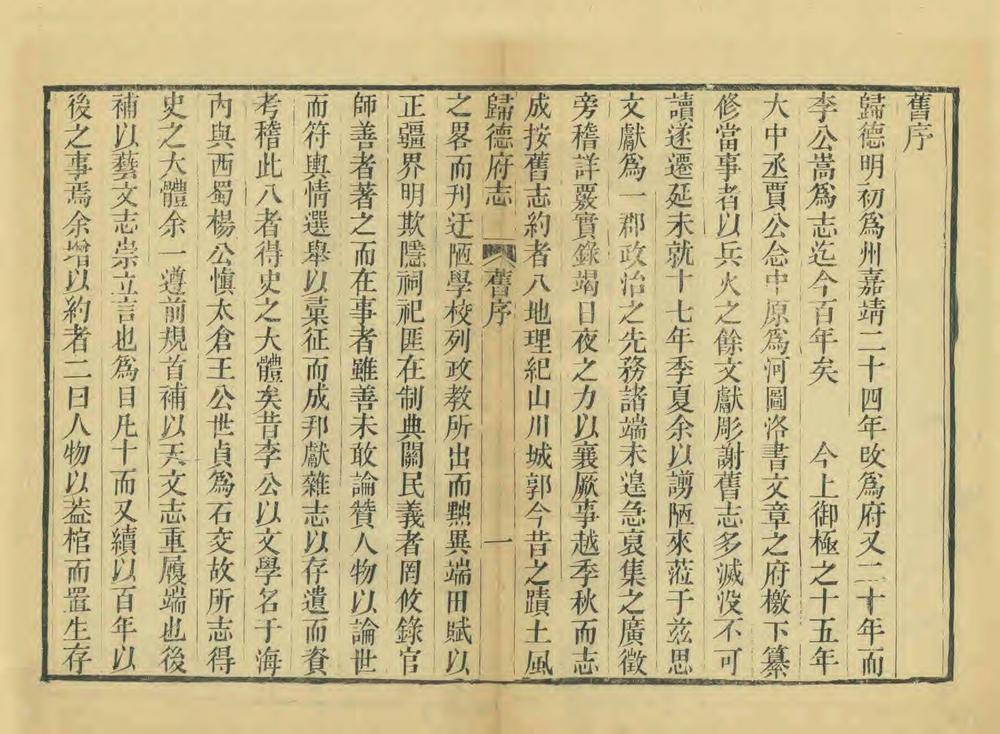 舊序
歸德明初爲州嘉靖二十四年改爲府又二十年而
李公嵩爲志迄今百年矣　今上御極之十五年
大中丞賈公念中原爲河圖洛書文章之府檄下纂
修當事者以兵火之餘文獻彫謝舊志多滅沒不可
讀遂遷延未就十七年季夏余以謭陋來蒞于茲思
文獻爲一郡政治之先務諸端未遑急裒集之廣徵
旁稽詳覈實錄竭日夜之力以襄厥事越季秋而志
成按舊志約者八地理紀山川城郭今昔之蹟土風
歸德府志　舊序　一
之畧而刊迂陋學校列政教所出而黜異端田賦以
正疆界明欺隱祠祀匪在制典關民義者罔攸錄官
師善者著之而在事者雖善未敢論贊人物以論世
而符輿情選舉以彚征而成邦獻雜志以存遺而資
考稽此八者得史之大體矣昔李公以文學名于海
內與西蜀楊公愼太倉王公世貞爲石交故所志得
史之大體余一遵前規首補以天文志重履端也後
補以藝文志崇立言也爲目凡十而又續以百年以
後之事焉余增以約者二曰人物以葢棺而置生存